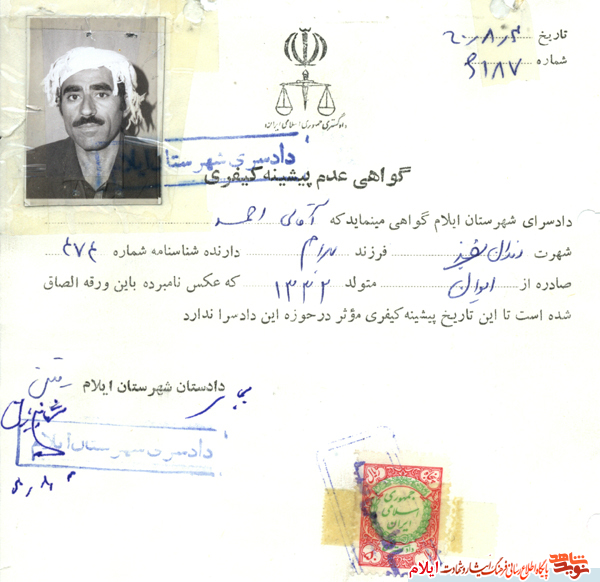 تاریخ
شماره ۶۱۸۷
دادگستری جمهوری اسلامی ایران
دادسرای شهرستان ایلام
گواهی عدم پیشینه کیفری
دادسرای شهرستان ایلام گواهی مینماید که آقای احمد
شهرت فرزند بهرام دارنده شناسنامه شماره ۴۷۴
صادره از ایوان متولد ۱۳۳۲ که عکس نامبرده باین ورقه الصاق
شده است تا این تاریخ پیشینه کیفری مؤثر در حوزه این دادسرا ندارد
دادستان شهرستان ایلام
دادسرای شهرستان ایلام
ریال
جمهوری
اسلامی
ایران
نوید شاهد
پایگاه اطلاع رسانی فرهنگ ایثار و شهادت ایلام